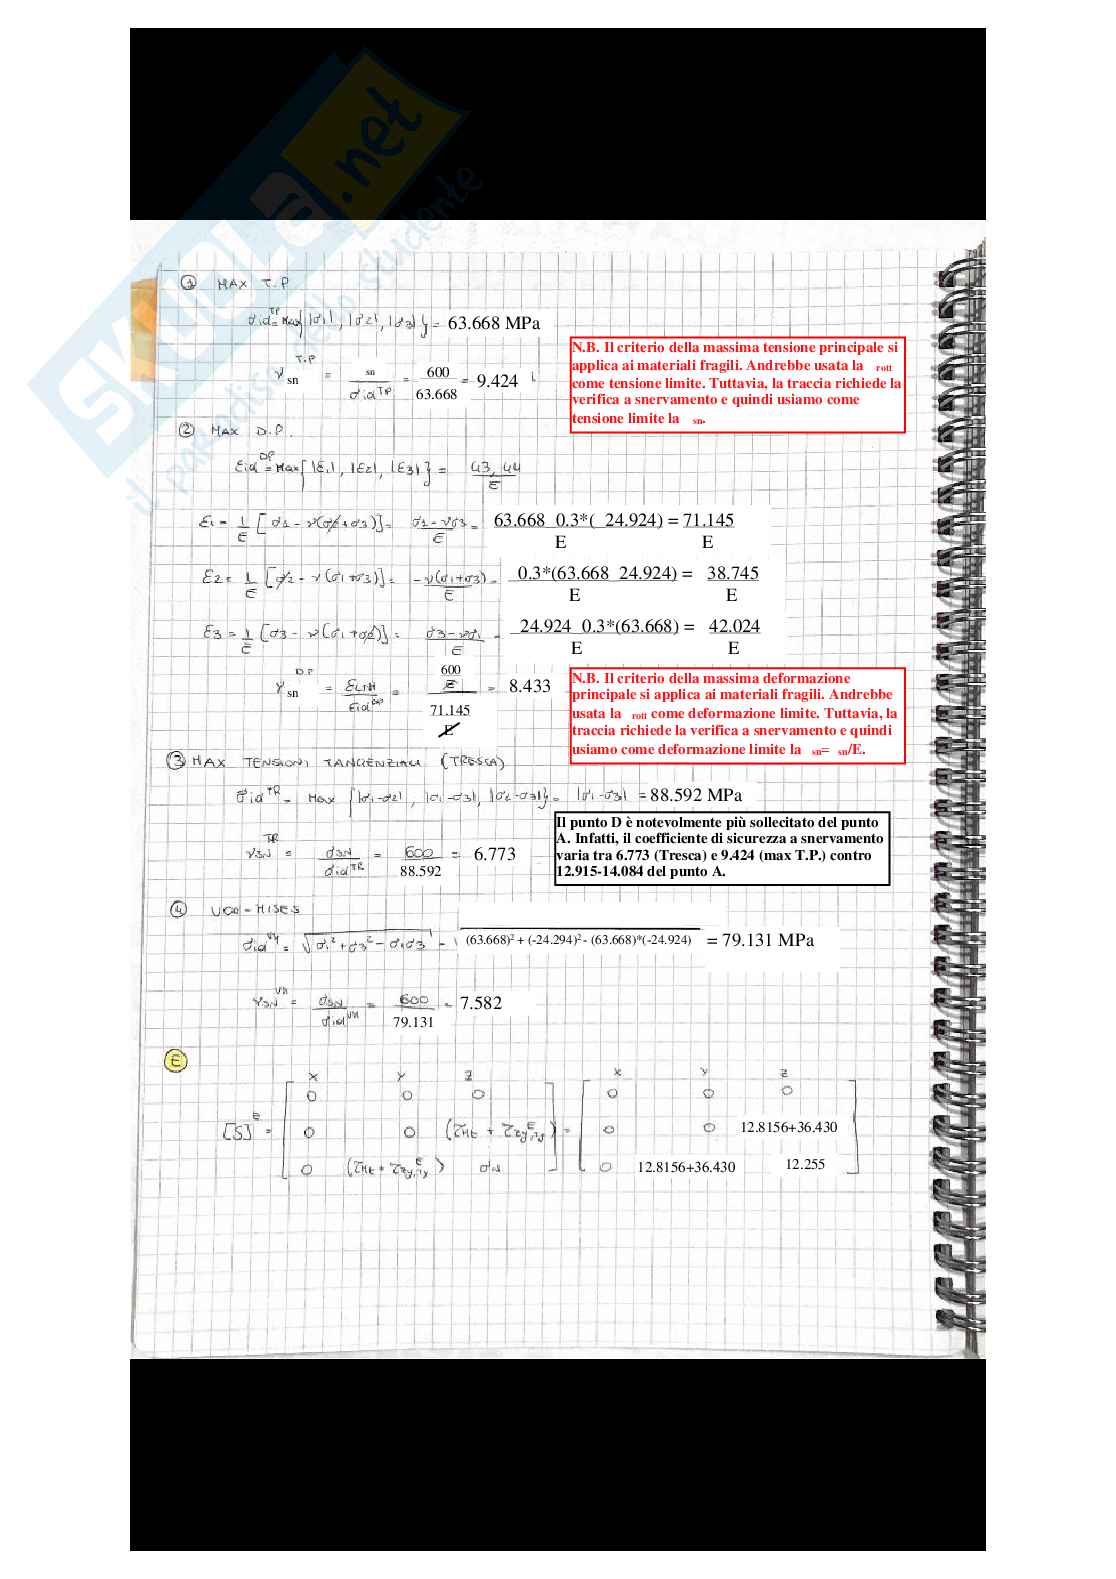 SKUOLA.net
il paradiso dello studente
① MAX T.P
σid^TP = Max{|σ1|, |σ2|, |σ3|} = 63.668 MPa
ν sn^T.P = sn / σid^TP = 600 / 63.668 = 9.424
N.B. Il criterio della massima tensione principale si
applica ai materiali fragili. Andrebbe usata la rott
come tensione limite. Tuttavia, la traccia richiede la
verifica a snervamento e quindi usiamo come
tensione limite la sn.
② MAX D.P.
εid^DP = Max{|ε1|, |ε2|, |ε3|} = 43,44 / E
ε1 = 1/E [σ1 - ν(σ2+σ3)] = σ1-νσ3 / E = 63.668 0.3*( 24.924) / E = 71.145 / E
ε2 = 1/E [σ2 - ν(σ1+σ3)] = -ν(σ1+σ3) / E = 0.3*(63.668 24.924) / E = 38.745 / E
ε3 = 1/E [σ3 - ν(σ1+σ2)] = σ3-νσ1 / E = 24.924 0.3*(63.668) / E = 42.024 / E
ν sn^D.P = εLIM / εid^DP = 600 / E / 71.145 / E = 8.433
N.B. Il criterio della massima deformazione
principale si applica ai materiali fragili. Andrebbe
usata la rott come deformazione limite. Tuttavia, la
traccia richiede la verifica a snervamento e quindi
usiamo come deformazione limite la sn= sn/E.
③ MAX TENSIONI TANGENZIALI (TRESCA)
σid^TR = Max {|σ1-σ2|, |σ1-σ3|, |σ2-σ3|} = |σ1-σ3| = 88.592 MPa
Il punto D è notevolmente più sollecitato del punto
A. Infatti, il coefficiente di sicurezza a snervamento
varia tra 6.773 (Tresca) e 9.424 (max T.P.) contro
12.915-14.084 del punto A.
νSN^TR = σSN / σid^TR = 600 / 88.592 = 6.773
④ VON-MISES
σid^VM = √σ1² + σ3² - σ1σ3 = √(63.668)² + (-24.294)² - (63.668)*(-24.924) = 79.131 MPa
νSN^VM = σSN / σid^VM = 600 / 79.131 = 7.582
E
X Y Z X Y Z
0 0 0 0 0 0
[S]^E = 0 0 (τMt + τzy,Ty^E) = 0 0 12.8156+36.430
0 (τMt + τzy,Ty^E) 0 12.8156+36.430 12.255